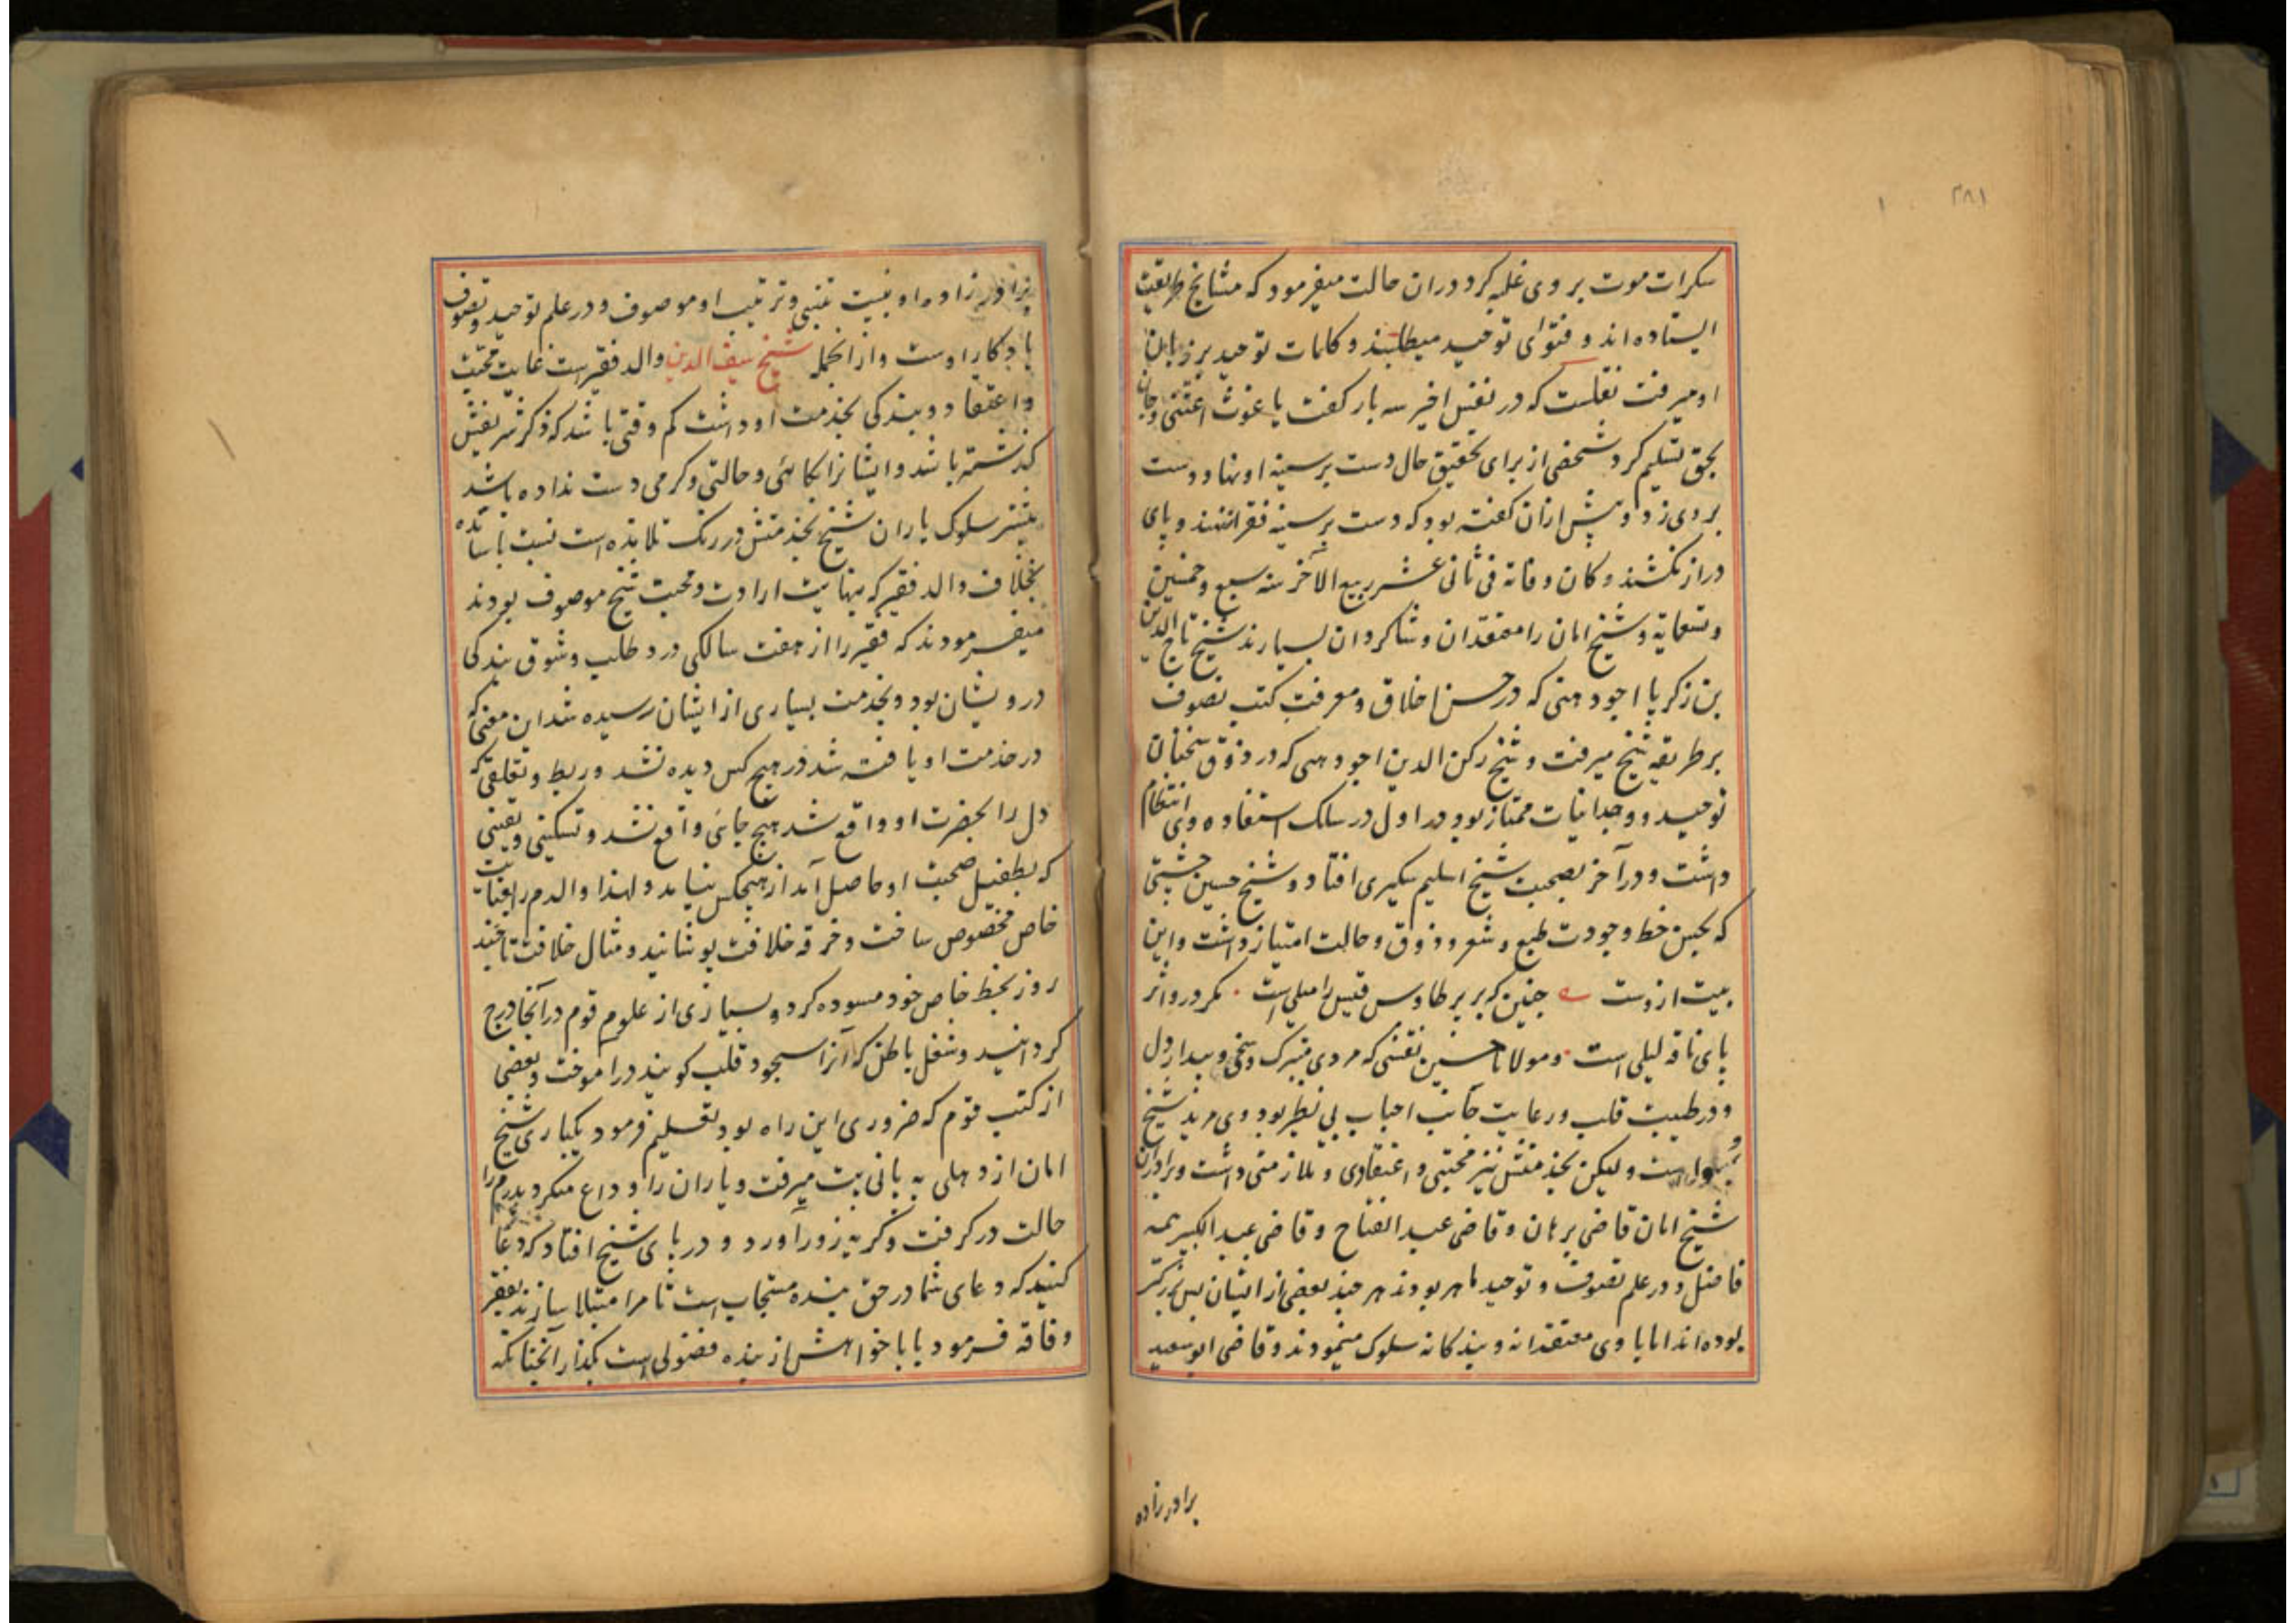 ۲۸۱
۱
سکرات موت بر وی غلبه کرد دران حالت میفرمود که مشایخ طریقت
ایستاده‌اند و فتوای توحید میطلبند و کلمات توحید بر زبان
او میرفت نقلست که در نفس اخیر سه بار کفت یا غوث اغثنی و جان
بحق تسلیم کرد شخصی از برای تحقیق حال دست بر سینه او نهاد دست
بر وی زد و پیش ازان کفته بود که دست بر سینه فقرا ننهند و پای
دراز نکشند و کان وفاته فی ثانی عشر ربیع الآخر سنه سبع و خمسین
و تسعمایة و شیخ امان را معتقدان و شاکردان بسیارند شیخ تاج الدین
بن زکریا اجودهنی که در حسن اخلاق و معرفت کتب تصوف
بر طریقه شیخ میرفت و شیخ رکن الدین اجودهنی که در ذوق سخنان
توحید و وجدانیات ممتاز بود در اول در سلک استفاده وی انتظام
داشت و در آخر بصحبت شیخ اسلیم سیکری افتاد و شیخ حسین چشتی
که بحسن خط و جودت طبع و شعر و ذوق و حالت امتیاز داشت و این
بیت ازوست چنین که بر پر طاوس قیس را میلی است ۰ مکر درو اثر
پای ناقه لیلی است ۰ و مولانا حسین نقشی که مردی متبرک و سخی و بیدار دل
و در طیبت قلب و رعایت جانب احباب بی نظیر بود وی مرید شیخ
است و لیکن بخدمتش نیز محبتی و اعتقادی و ملازمتی داشت و برادران
شیخ امان قاضی برهان و قاضی عبد الفتاح و قاضی عبد الکبیر همه
فاضل و در علم تصوف و توحید ماهر بودند هر چند بعضی از ایشان بسن بزرکتر
بوده‌اند اما با وی معتقدانه و بندکانه سلوک مینمودند و قاضی ابو سعید
برادرزاده
برادرزاده او نسبت تبنی و تربیت او موصوف و در علم توحید و تصوف
یادکار اوست و از انجمله شیخ سیف الدین والد فقیر است غایت محبت
و اعتقاد و بندکی بخدمت او داشت کم وقتی باشد که ذکر شریفش
کذشته باشد و ایشانرا بکائی و حالتی و کرمی دست نداده باشد
بیشتر سلوک یاران شیخ بخدمتش در رنک تلامذه است نسبت باساتذه
بخلاف والد فقیر که بنهایت ارادت و محبت شیخ موصوف بودند
میفرمودند که فقیر را از هفت سالکی درد طلب و شوق بندکی
درویشان بود و بخدمت بسیاری از ایشان رسیده شد این معنی که
در خدمت او یافته شد در هیچ کس دیده نشد و ربط و تعلقی که
دل را بحضرت او واقع شد هیچ جائی واقع نشد و تسکینی و یقینی
که بطفیل صحبت او حاصل آمد از هیچکس نیامد و لهذا والدم را بعنایت
خاص مخصوص ساخت و خرقه خلافت پوشانید و مثال خلافت تا چند
روز بخط خاص خود مسوده کرد و بسیاری از علوم قوم در آنجا درج
کردانید و شغل باطن که آنرا سجود قلب کویند درآموخت و بعضی
از کتب قوم که ضروری این راه بود تعلیم فرمود یکباری شیخ
امان از دهلی به پانی پت میرفت و یاران را وداع میکرد پدرم را
حالت در کرفت و کریه زور آورد و در پای شیخ افتاد که دعا
کنید که دعای شما در حق بنده مستجاب است تا مرا مبتلا سازند بفقر
و فاقه فرمود بابا خواهش از بنده فضولی است بکذار آنچنانکه